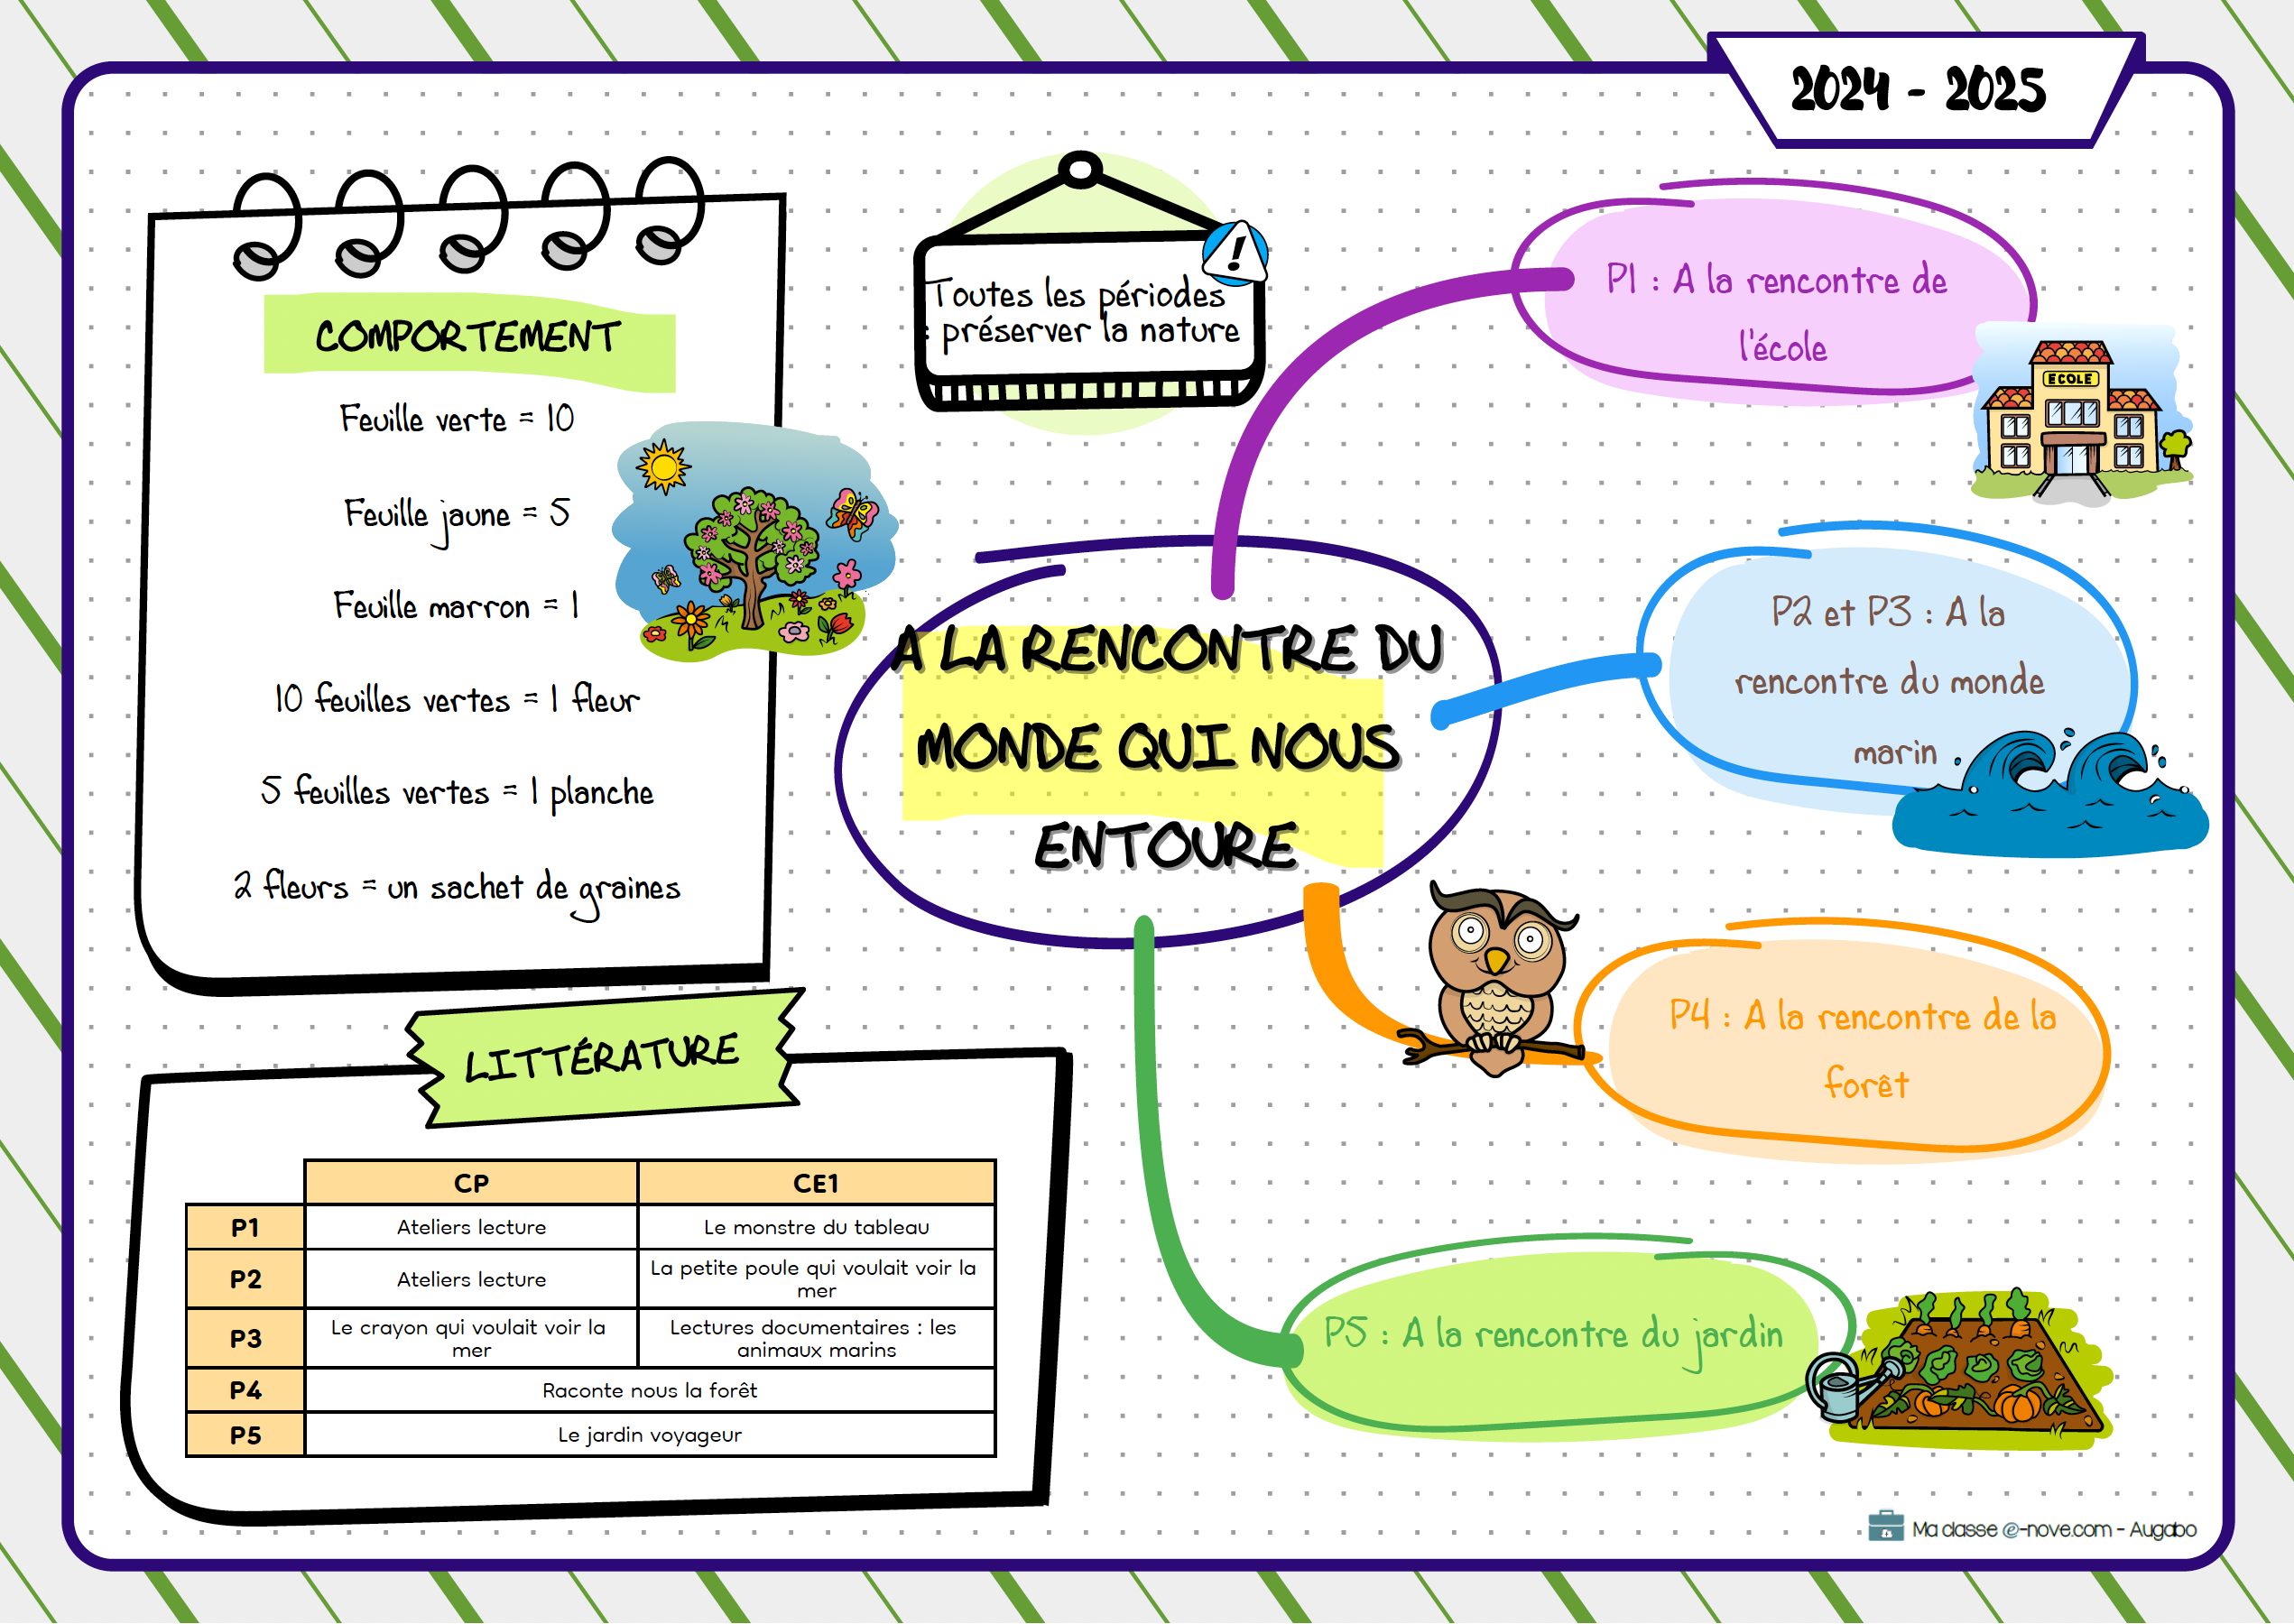 2024 - 2025
COMPORTEMENT
Feuille verte = 10
Feuille jaune = 5
Feuille marron = 1
10 feuilles vertes = 1 fleur
5 feuilles vertes = 1 planche
2 fleurs = un sachet de graines
Toutes les périodes
: préserver la nature
A LA RENCONTRE DU
MONDE QUI NOUS
ENTOURE
P1 : A la rencontre de
l'école
ECOLE
P2 et P3 : A la
rencontre du monde
marin
P4 : A la rencontre de la
forêt
P5 : A la rencontre du jardin
LITTÉRATURE
CP CE1
P1 Ateliers lecture Le monstre du tableau
P2 Ateliers lecture La petite poule qui voulait voir la
mer
P3 Le crayon qui voulait voir la
mer Lectures documentaires : les
animaux marins
P4 Raconte nous la forêt
P5 Le jardin voyageur
Ma classe @-nove.com - Augabo